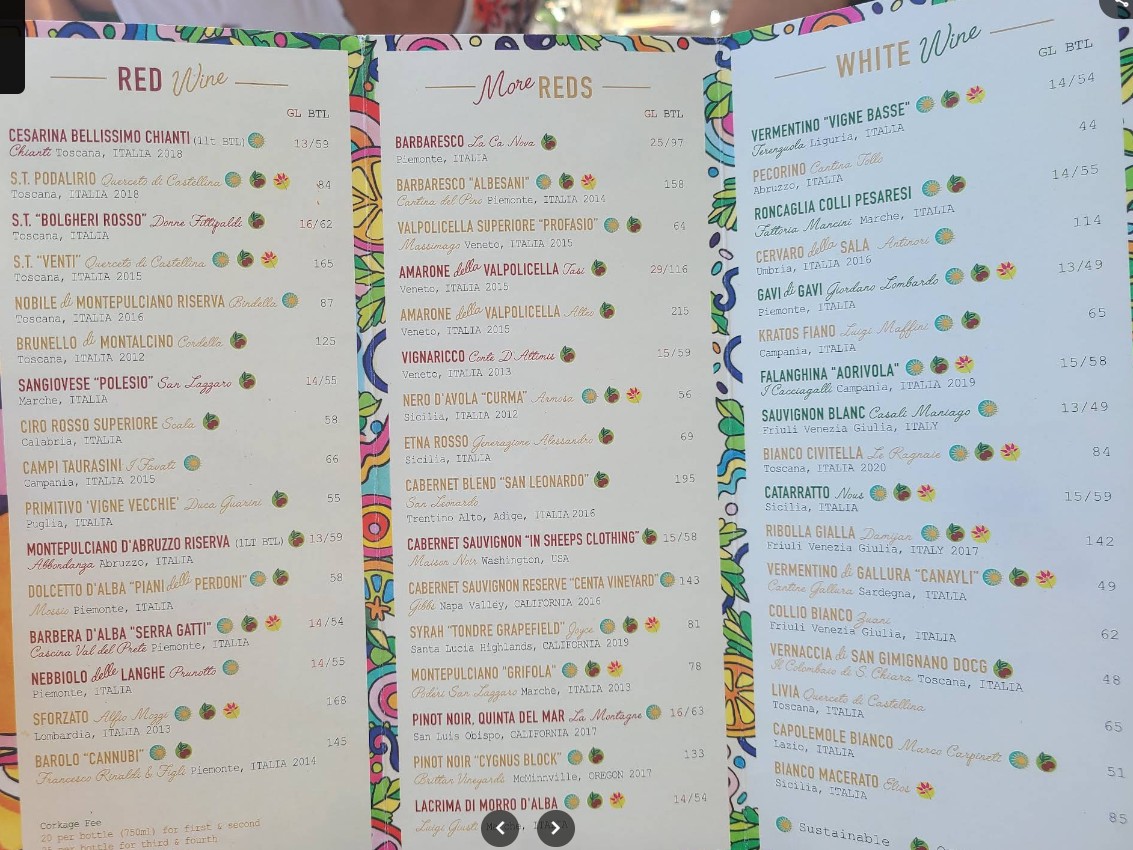 RED Wine
GL BTL
CESARINA BELLISSIMO CHIANTI (1lt BTL) 13/59
Chianti Toscana, ITALIA 2018
S.T. PODALIRIO Querceto di Castellina 84
Toscana, ITALIA 2018
S.T. "BOLGHERI ROSSO" Donne Fittipaldi 16/62
Toscana, ITALIA
S.T. "VENTI" Querceto di Castellina 165
Toscana, ITALIA 2015
NOBILE di MONTEPULCIANO RISERVA Bindella 87
Toscana, ITALIA 2016
BRUNELLO di MONTALCINO Cordella 125
Toscana, ITALIA 2012
SANGIOVESE "POLESIO" San Lazzaro 14/55
Marche, ITALIA
CIRO ROSSO SUPERIORE Scala 58
Calabria, ITALIA
CAMPI TAURASINI I Favati 66
Campania, ITALIA 2015
PRIMITIVO 'VIGNE VECCHIE' Duca Guarini 55
Puglia, ITALIA
MONTEPULCIANO D'ABRUZZO RISERVA (1LT BTL) 13/59
Abbondanza Abruzzo, ITALIA
DOLCETTO D'ALBA "PIANI delli PERDONI" 58
Mossio Piemonte, ITALIA
BARBERA D'ALBA "SERRA GATTI" 14/54
Cascina Val del Prete Piemonte, ITALIA
NEBBIOLO delle LANGHE Prunotto 14/55
Piemonte, ITALIA
SFORZATO Alfio Mozzi 168
Lombardia, ITALIA 2013
BAROLO "CANNUBI" 145
Francesco Rinaldi & Figli Piemonte, ITALIA 2014
Corkage Fee
20 per bottle (750ml) for first & second
per bottle for third & fourth
More REDS
GL BTL
BARBARESCO La Ca Nova 25/97
Piemonte, ITALIA
BARBARESCO "ALBESANI" 158
Cantina del Pino Piemonte, ITALIA 2014
VALPOLICELLA SUPERIORE "PROFASIO" 64
Massimago Veneto, ITALIA 2015
AMARONE della VALPOLICELLA Tasi 29/116
Veneto, ITALIA 2015
AMARONE della VALPOLICELLA 215
Veneto, ITALIA 2015
VIGNARICCO Conte D'Attimis 15/59
Veneto, ITALIA 2013
NERO D'AVOLA "CURMA" Armosa 56
Sicilia, ITALIA 2012
ETNA ROSSO Generazione Alessandro 69
Sicilia, ITALIA
CABERNET BLEND "SAN LEONARDO" 195
San Leonardo
Trentino Alto, Adige, ITALIA 2016
CABERNET SAUVIGNON "IN SHEEPS CLOTHING" 15/58
Maison Noir Washington, USA
CABERNET SAUVIGNON RESERVE "CENTA VINEYARD" 143
Gibbs Napa Valley, CALIFORNIA 2016
SYRAH "TONDRE GRAPEFIELD" Joyce 81
Santa Lucia Highlands, CALIFORNIA 2019
MONTEPULCIANO "GRIFOLA" 78
Poderi San Lazzaro Marche, ITALIA 2013
PINOT NOIR, QUINTA DEL MAR La Montagne 16/63
San Luis Obispo, CALIFORNIA 2017
PINOT NOIR "CYGNUS BLOCK" 133
Brittan Vineyards McMinnville, OREGON 2017
LACRIMA DI MORRO D'ALBA 14/54
Luigi Giusti
WHITE Wine
GL BTL
VERMENTINO "VIGNE BASSE" 14/54
Terenzuola Liguria, ITALIA
PECORINO Cantina Tollo 44
Abruzzo, ITALIA
RONCAGLIA COLLI PESARESI 14/55
Fattoria Mancini Marche, ITALIA
CERVARO della SALA Antinori 114
Umbria, ITALIA 2016
GAVI di GAVI Giordano Lombardo 13/49
Piemonte, ITALIA
KRATOS FIANO Luigi Maffini 65
Campania, ITALIA
FALANGHINA "AORIVOLA" 15/58
I Cacciagalli Campania, ITALIA 2019
SAUVIGNON BLANC Casali Maniago 13/49
Friuli Venezia Giulia, ITALY
BIANCO CIVITELLA Le Ragnaie 84
Toscana, ITALIA 2020
CATARRATTO Nous 15/59
Sicilia, ITALIA
RIBOLLA GIALLA Damijan 142
Friuli Venezia Giulia, ITALY 2017
VERMENTINO di GALLURA "CANAYLI" 49
Cantine Gallura Sardegna, ITALIA
COLLIO BIANCO Zuani 62
Friuli Venezia Giulia, ITALIA
VERNACCIA di SAN GIMIGNANO DOCG 48
Il Colombaio di S. Chiara Toscana, ITALIA
LIVIA Querceto di Castellina 65
Toscana, ITALIA
CAPOLEMOLE BIANCO Marco Carpineti 51
Lazio, ITALIA
BIANCO MACERATO Elios 85
Sicilia, ITALIA
Sustainable